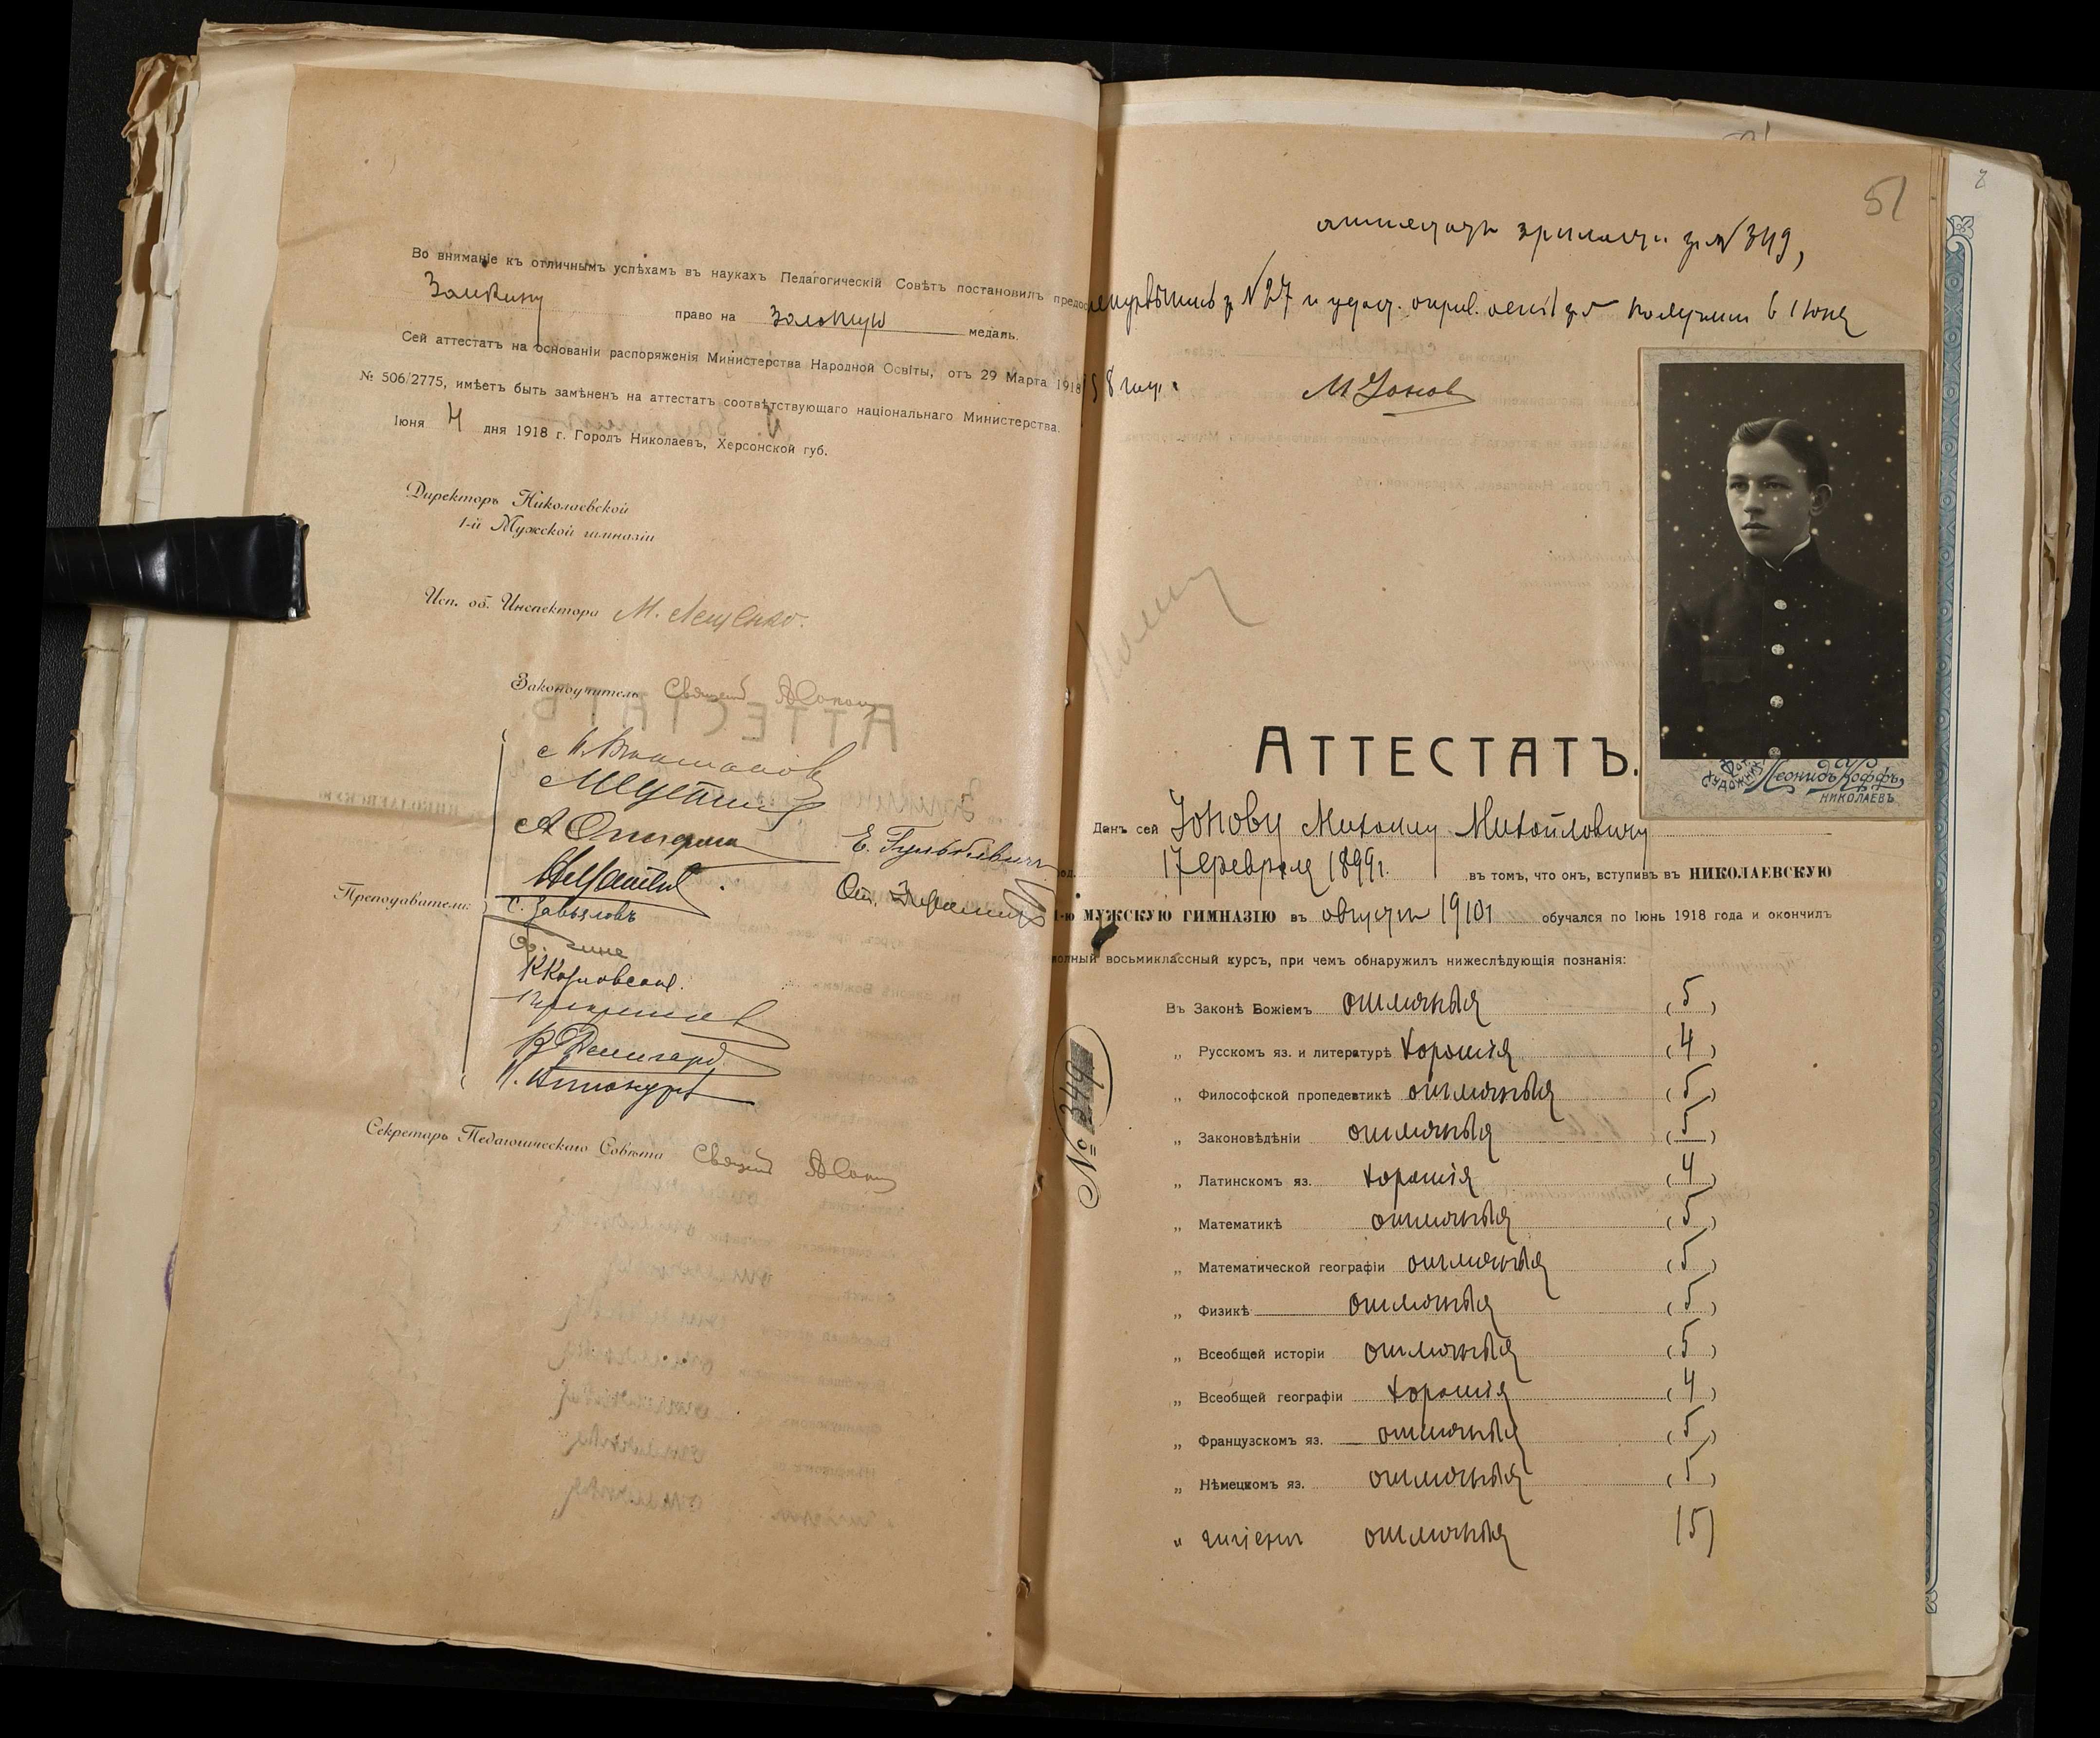 Во вниманіе къ отличнымъ успѣхамъ въ наукахъ Педагогическій Совѣтъ постановилъ предос
Залкину право на золотую медаль.
Сей аттестатъ на основаніи распоряженія Министерства Народной Освіты, отъ 29 Марта 1918
№ 506/2775, имѣетъ быть замѣненъ на аттестатъ соотвѣтствующаго національнаго Министерства.
Іюня 4 дня 1918 г. Городъ Николаевъ, Херсонской губ.
Директоръ Николаевской
1-й Мужской гимназіи
Исп. об. Инспектора М. Лещенко.
Законоучитель Священ
Е. Гульбѣвичъ
Преподаватели:
С. Завьяловъ
К Козловскій.
Секретарь Педагогическаго Совѣта Священ
51
аттестатъ зрѣлости за № 349,
за № 27 и получилъ 6 Іюня
18 года.
М Іоновъ
АТТЕСТАТЪ.
Леонидъ Коффъ
НИКОЛАЕВЪ
Данъ сей Іонову Михаилу Михайловичу
17 февраля 1899 г. въ томъ, что онъ, вступивъ въ НИКОЛАЕВСКУЮ
1-ю МУЖСКУЮ ГИМНАЗІЮ въ августѣ 1910 г обучался по Іюнь 1918 года и окончилъ
полный восьмиклассный курсъ, при чемъ обнаружилъ нижеслѣдующія познанія:
Въ Законѣ Божіемъ отличныя (5)
„ Русскомъ яз. и литературѣ хорошія (4)
„ Философской пропедевтикѣ отличныя (5)
„ Законовѣдѣніи отличныя (5)
„ Латинскомъ яз. хорошія (4)
„ Математикѣ отличныя (5)
„ Математической географіи отличныя (5)
„ Физикѣ отличныя (5)
„ Всеобщей исторіи отличныя (5)
„ Всеобщей географіи хорошія (4)
„ Французскомъ яз. отличныя (5)
„ Нѣмецкомъ яз. отличныя (5)
„ гигіенѣ отличныя (5)
№ 349